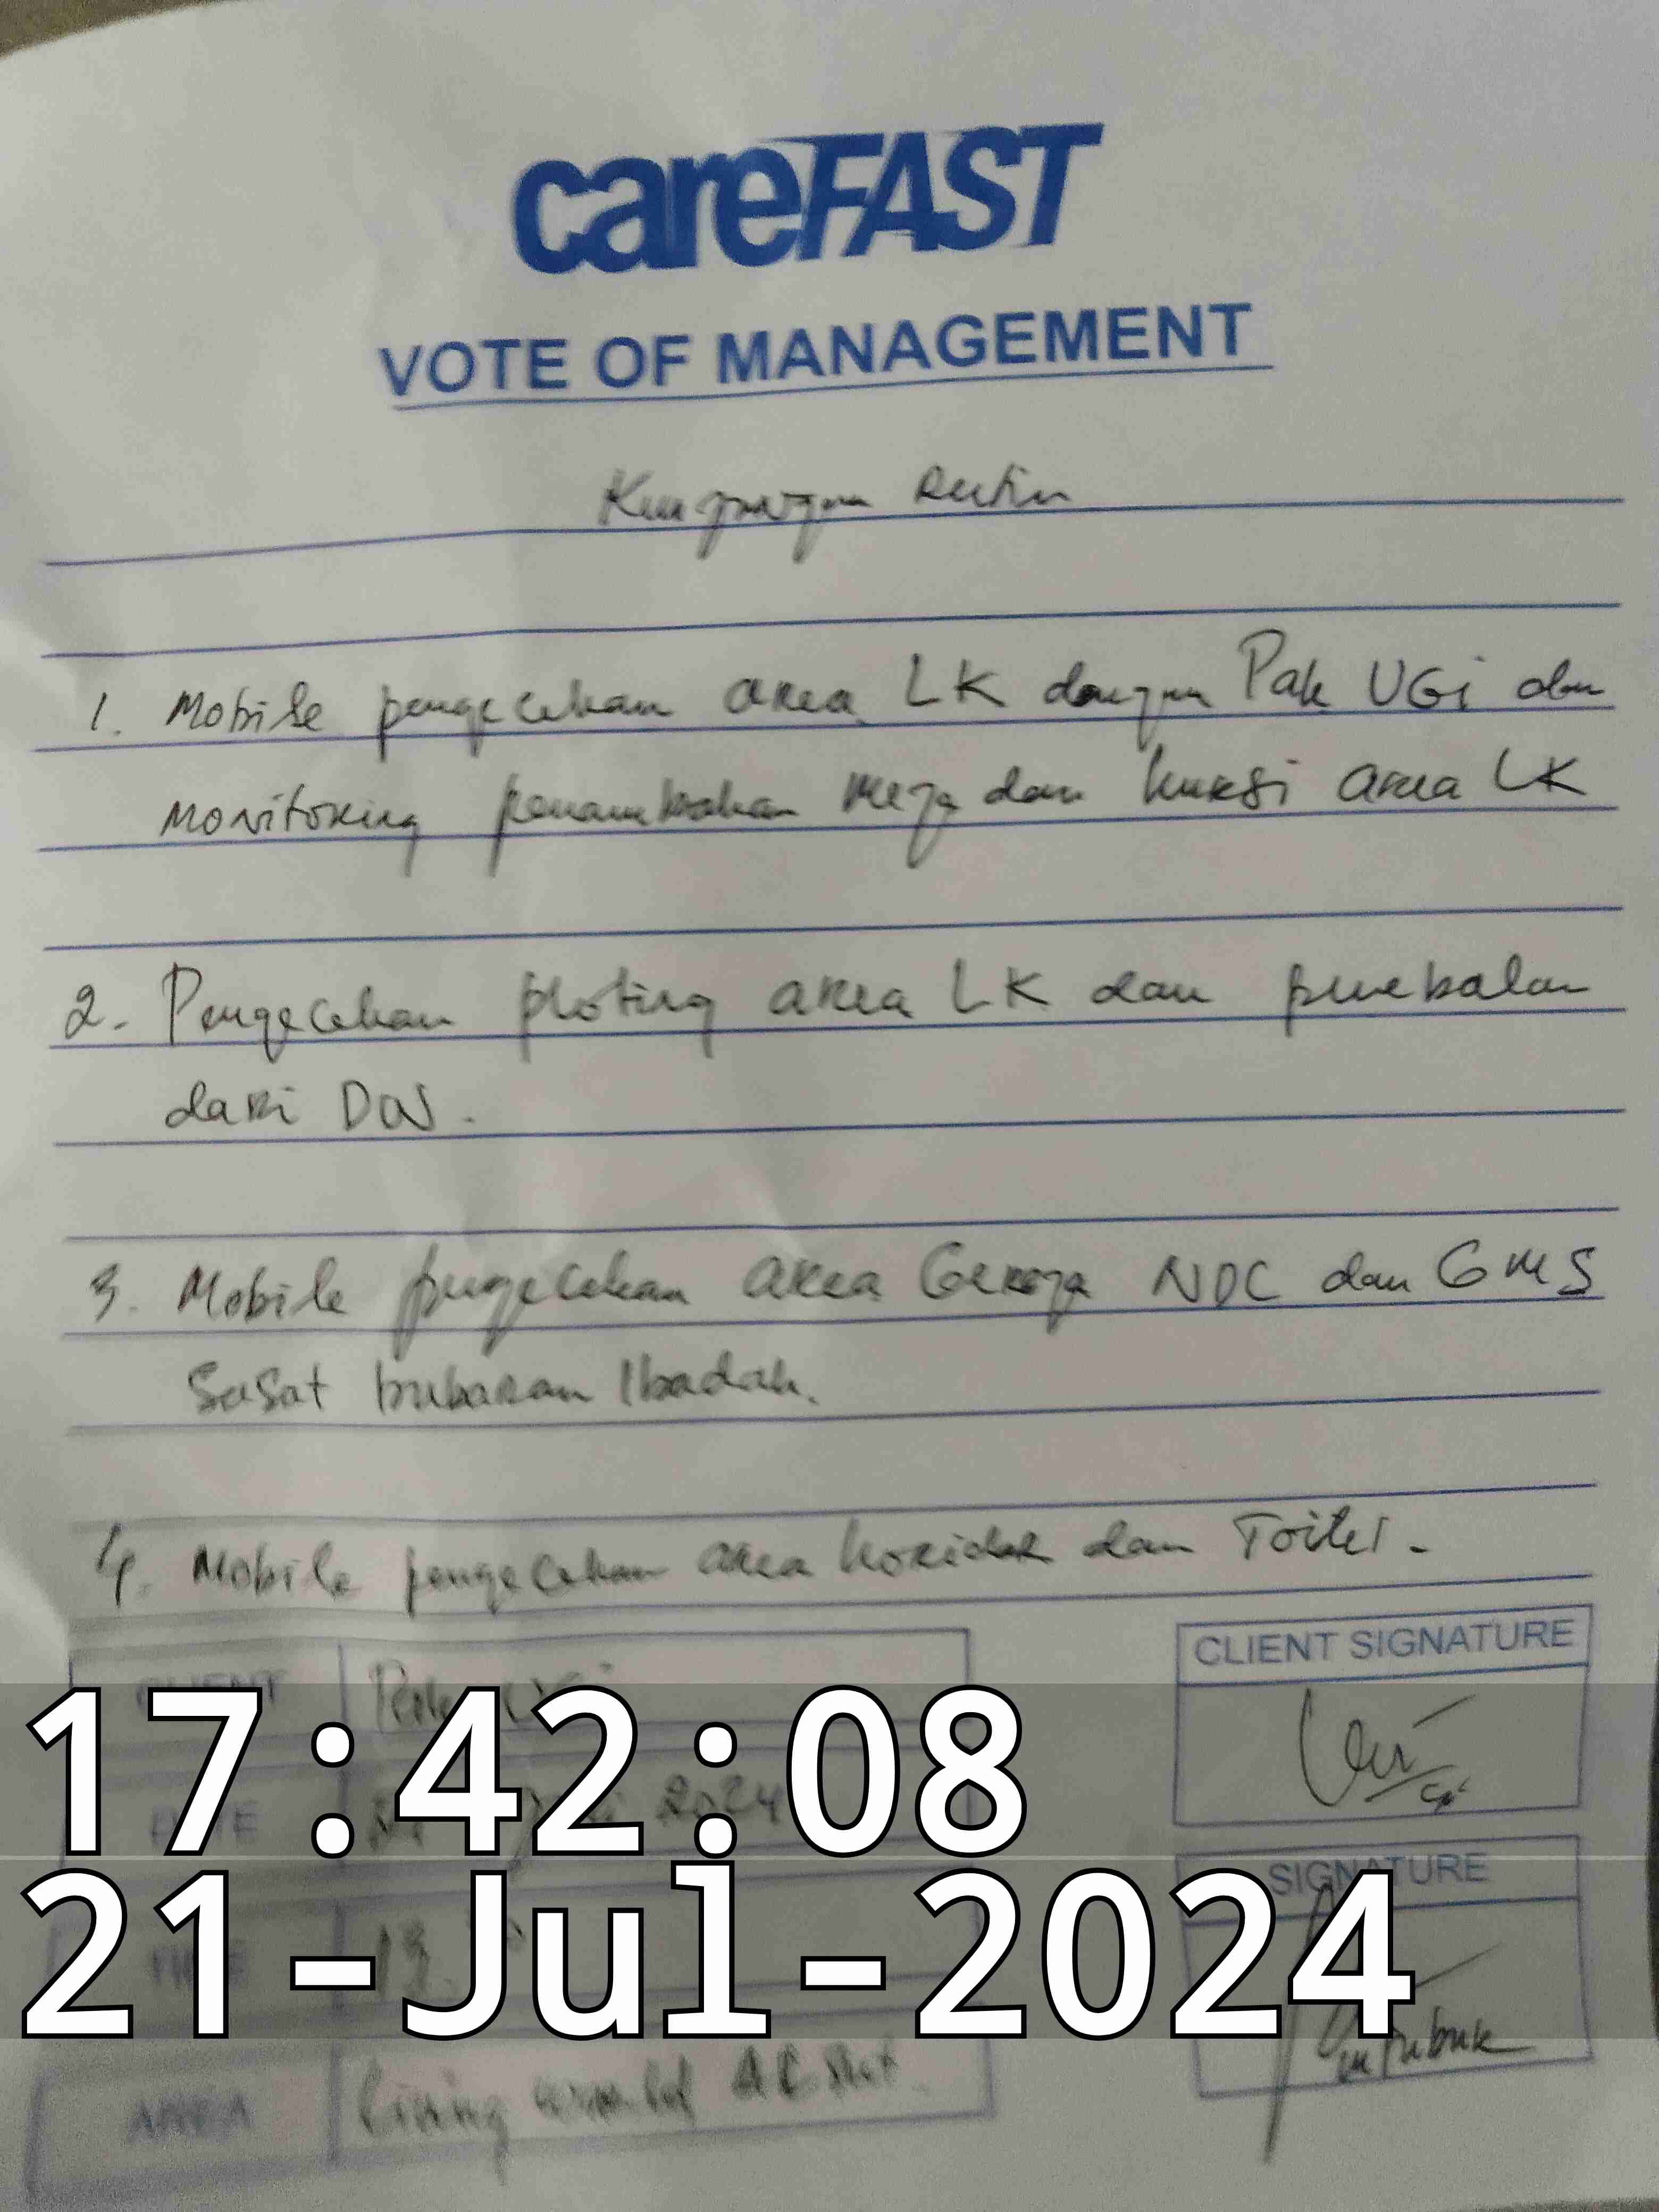 careFAST
VOTE OF MANAGEMENT
Kunjungan Rutin
1. Mobile pengecekan area LK dengan Pak UGi dan
Monitoring penambahan meja dan kursi area LK
2. Pengecekan ploting area LK dan
dari DW.
3. Mobile pengecekan area Gereja NDC dan GMS
Sasat bubaran Ibadah.
4. Mobile pengecekan area koridor dan Toilet.
CLIENT
CLIENT SIGNATURE
17:42:08
DATE 2024
21-Jul-2024
SIGNATURE
AREA Living world